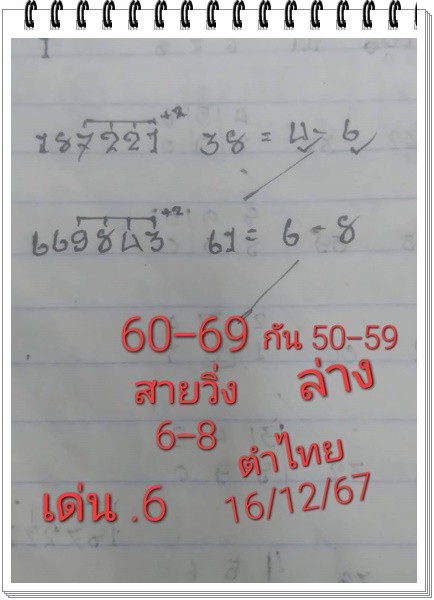 +2
187221 38 = 4 - 6
+2
669843 61 = 6 - 8
60-69 กัน 50-59
สายวิ่ง ล่าง
6-8
ตำไทย
เด่น .6 16/12/67